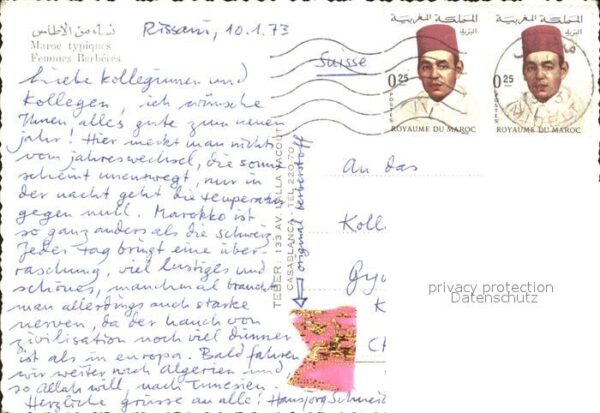 نساء من الأطلس
Maroc typiques
Femmes Berbères
Rissani, 10.1.73
Liebe Kolleginnen und
Kollegen, ich wünsche
Ihnen alles gute zum neuen
jahr! Hier merkt man nicht
vom jahreswechsel, die sonne
scheint unentwegt, nur in
der nacht geht die temperatur
gegen null. Marokko ist
so ganz anders als die schweiz.
Jeder tag bringt eine über-
raschung, viel lustiges und
schönes, manchmal braucht
man allerdings auch starke
nerven, da der hauch von
zivilisation noch viel dünner
ist als in europa. Bald fahren
wir weiter nach Algerien und
so Allah will, nach Tunesien.
Herzliche grüsse an alle! Hansjörg Schneid
TEBER - 133 AV. LALLA YACOUT
CASABLANCA - TEL. 220-70
original berberstoff
Suisse
المملكة المغربية
البريد
0.25
POSTES
ROYAUME DU MAROC
المملكة المغربية
البريد
0.25
POSTES
ROYAUME DU MAROC
an das
Koll
Gy
K
CH
privacy protection
Datenschutz